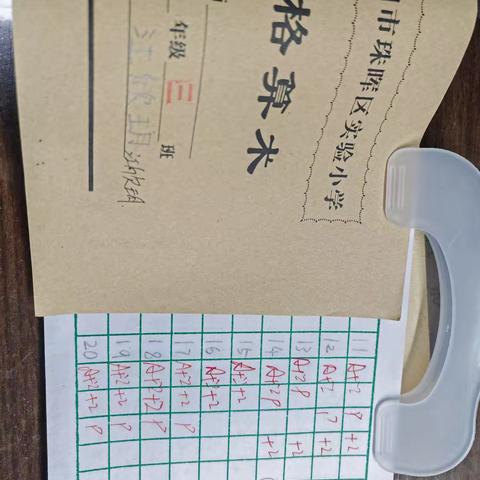 市珠晖区实验小学
格算术
年级 三 班
11 A+2 P +2
12 A+2 P +2
13 A+2P +2
14 A+2P +2
15 A+2+2
16 A+2+2
17 A+2+2 P
18 A+2+2 P
19 A+2+2 P
20 A+2+2 P